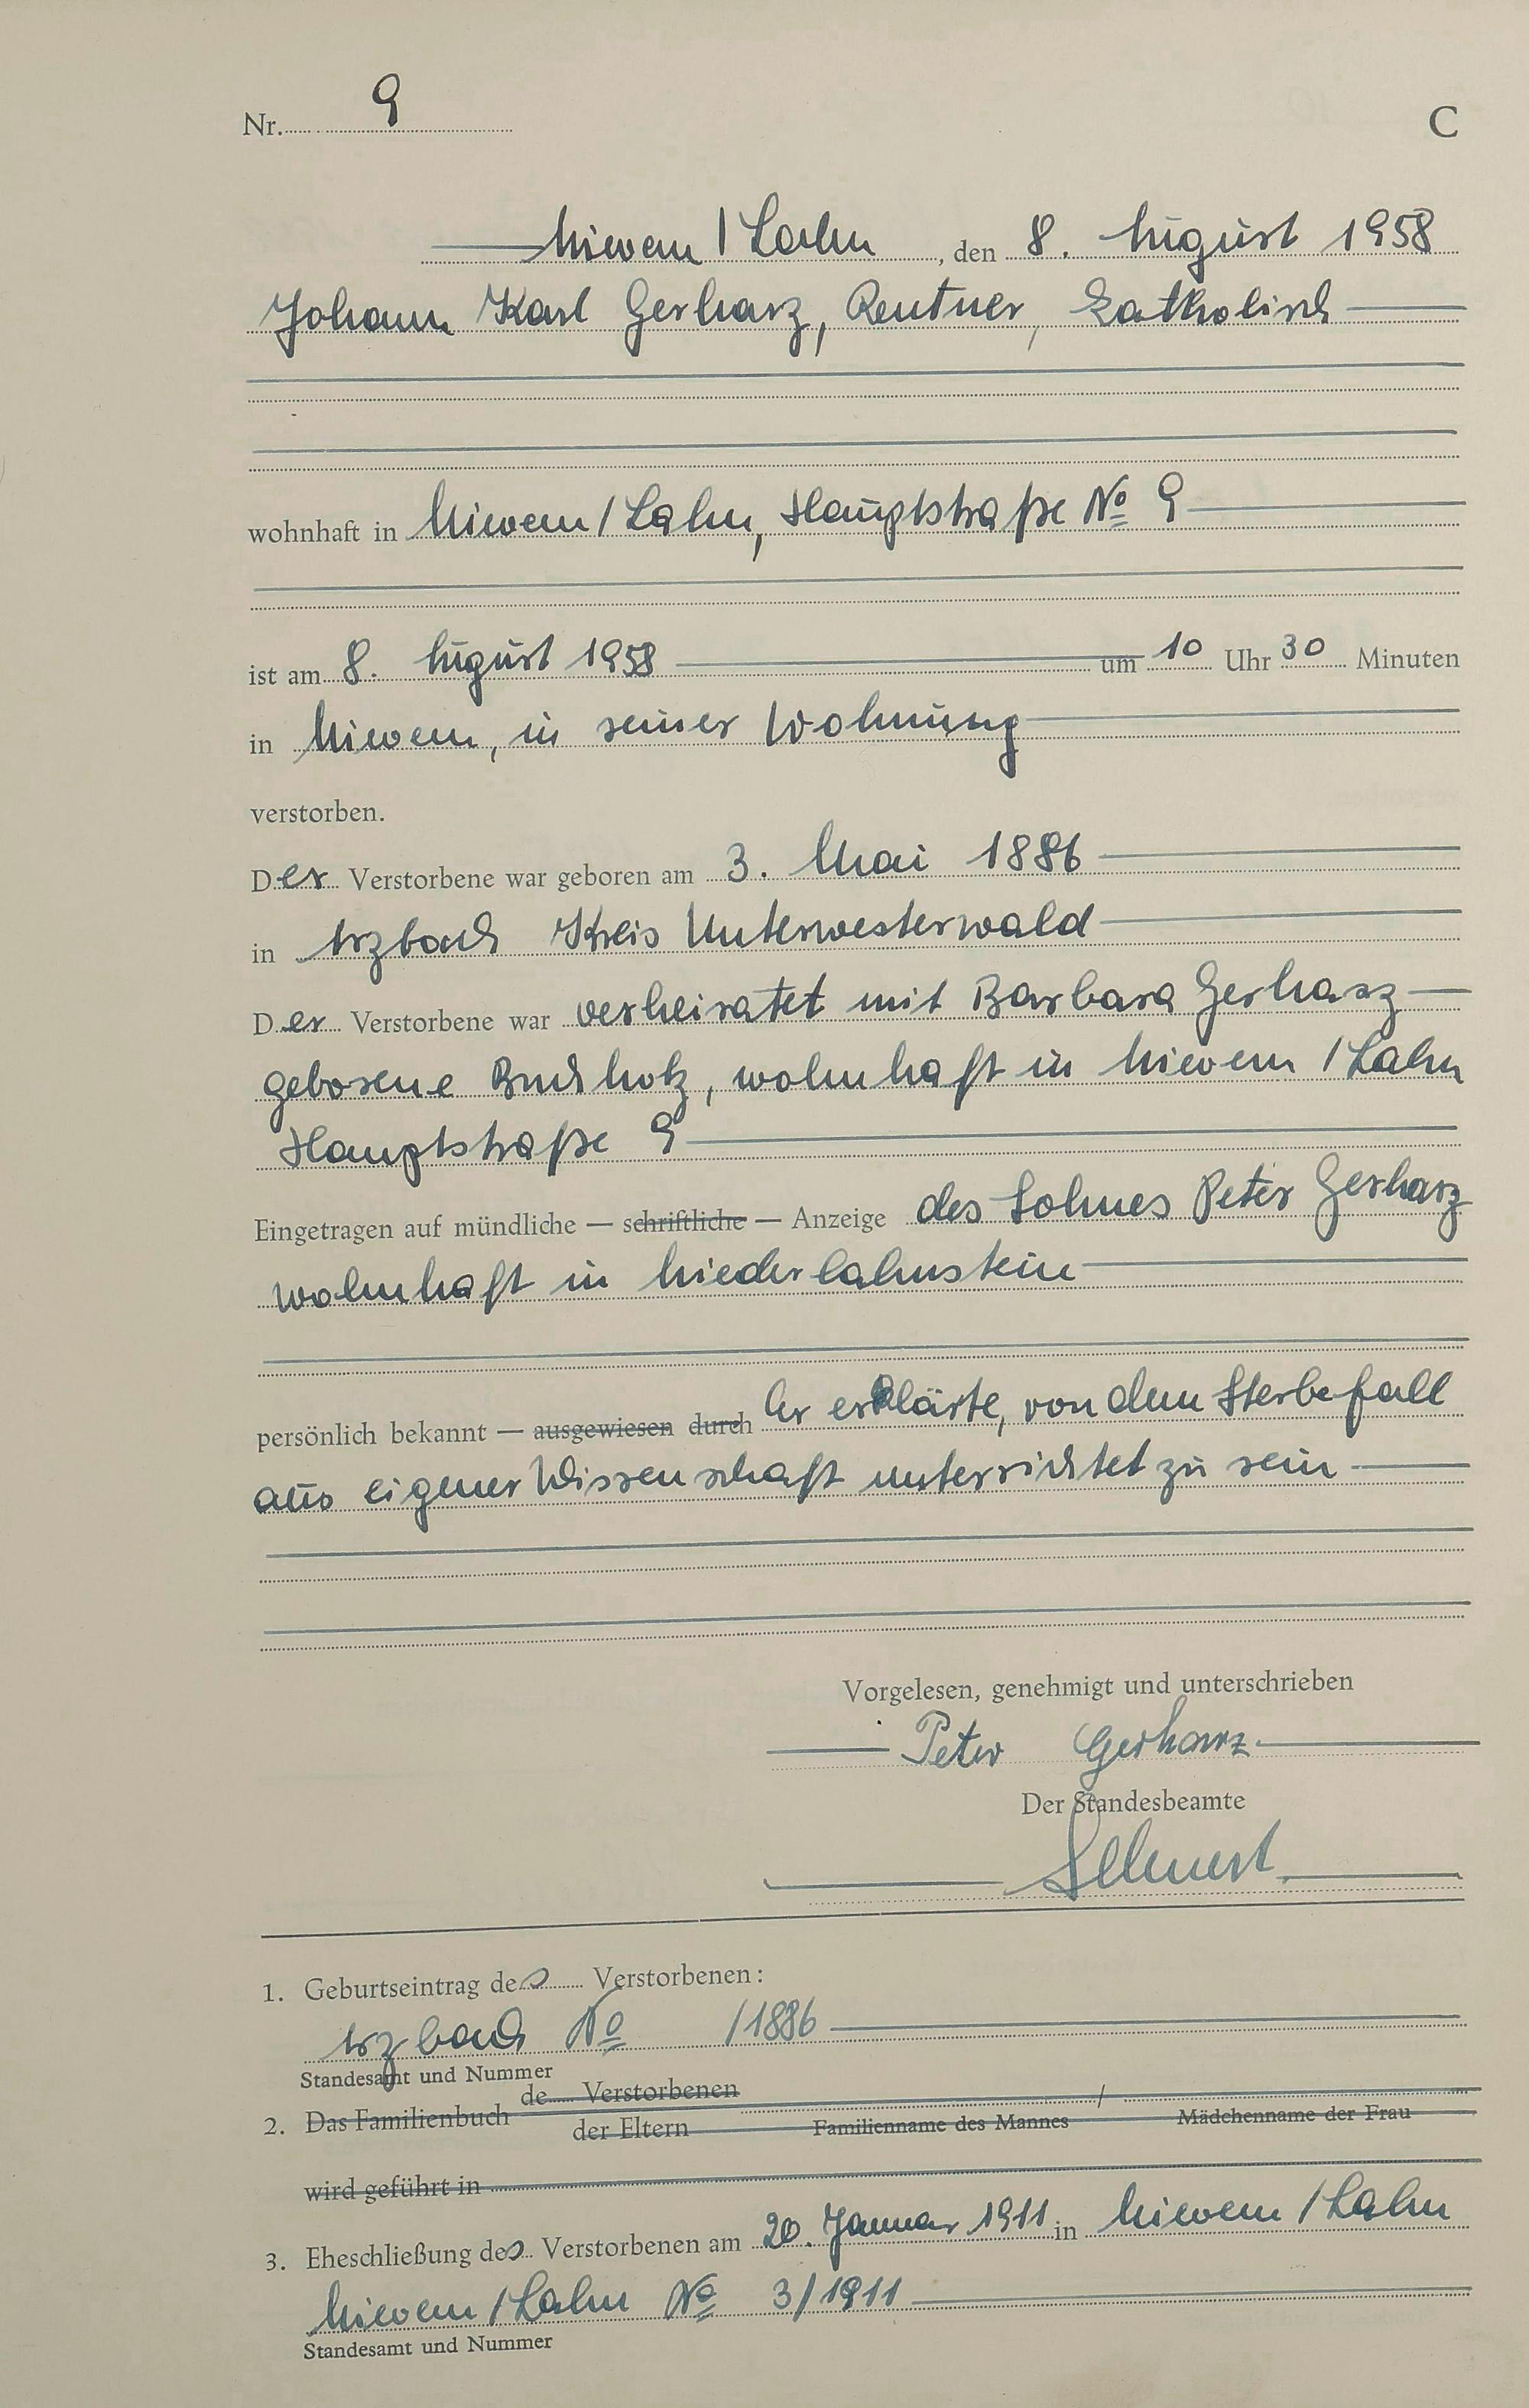 Nr. 9
C
Nievern / Lahn, den 8. August 1958
Johann Karl Gerharz, Rentner, katholisch
wohnhaft in Nievern / Lahn, Hauptstraße № 9
ist am 8. August 1958 um 10 Uhr 30 Minuten
in Nievern, in seiner Wohnung
verstorben.
Der Verstorbene war geboren am 3. Mai 1886
in Arzbach Kreis Unterwesterwald
Der Verstorbene war verheiratet mit Barbara Gerharz
geborene Buchholz, wohnhaft in Nievern / Lahn
Hauptstraße 9
Eingetragen auf mündliche — schriftliche — Anzeige des Sohnes Peter Gerharz
wohnhaft in Niederlahnstein
persönlich bekannt — ausgewiesen durch Er erklärte, von dem Sterbefall
aus eigener Wissenschaft unterrichtet zu sein
Vorgelesen, genehmigt und unterschrieben
Peter Gerharz
Der Standesbeamte
1. Geburtseintrag des Verstorbenen:
Arzbach № /1886
Standesamt und Nummer
de Verstorbenen
2. Das Familienbuch /
der Eltern Familienname des Mannes Mädchenname der Frau
wird geführt in
3. Eheschließung des Verstorbenen am 20. Januar 1911 in Nievern / Lahn
Nievern / Lahn № 3/1911
Standesamt und Nummer